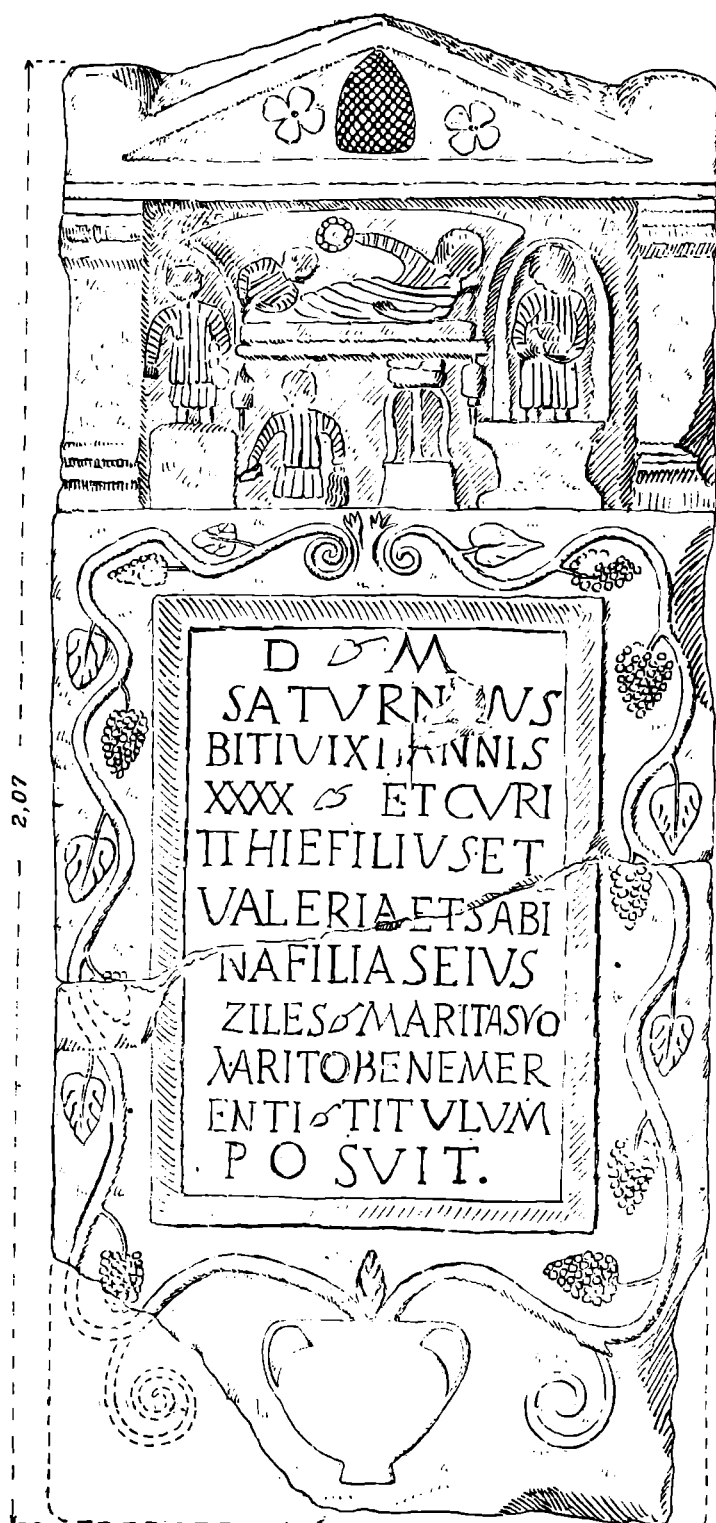 D M
SATVRN VS
BITIVIXI ANNIS
XXXX ETCVRI
TTHIEFILIVS·ET
VALERIAETSABI
NAFILIASEIVS
ZILES MARITASVO
MARITOBENEMER
ENTI TITVLVM
POSVIT.
2,07